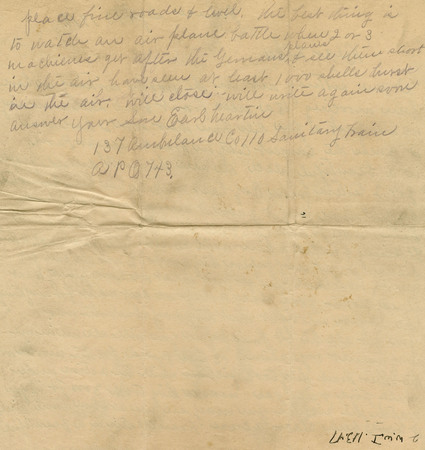 place fine roads & level. the best thing is
to watch an air plane battle where 2 or 3
machines get after the Germans planes & see them shoot
in the air have seen at least 1000 shells burst
in the air. will close will write again soon
answer your Son Earl Martin
137 Ambulance Co 110 Sanitary Train
A P O 743.